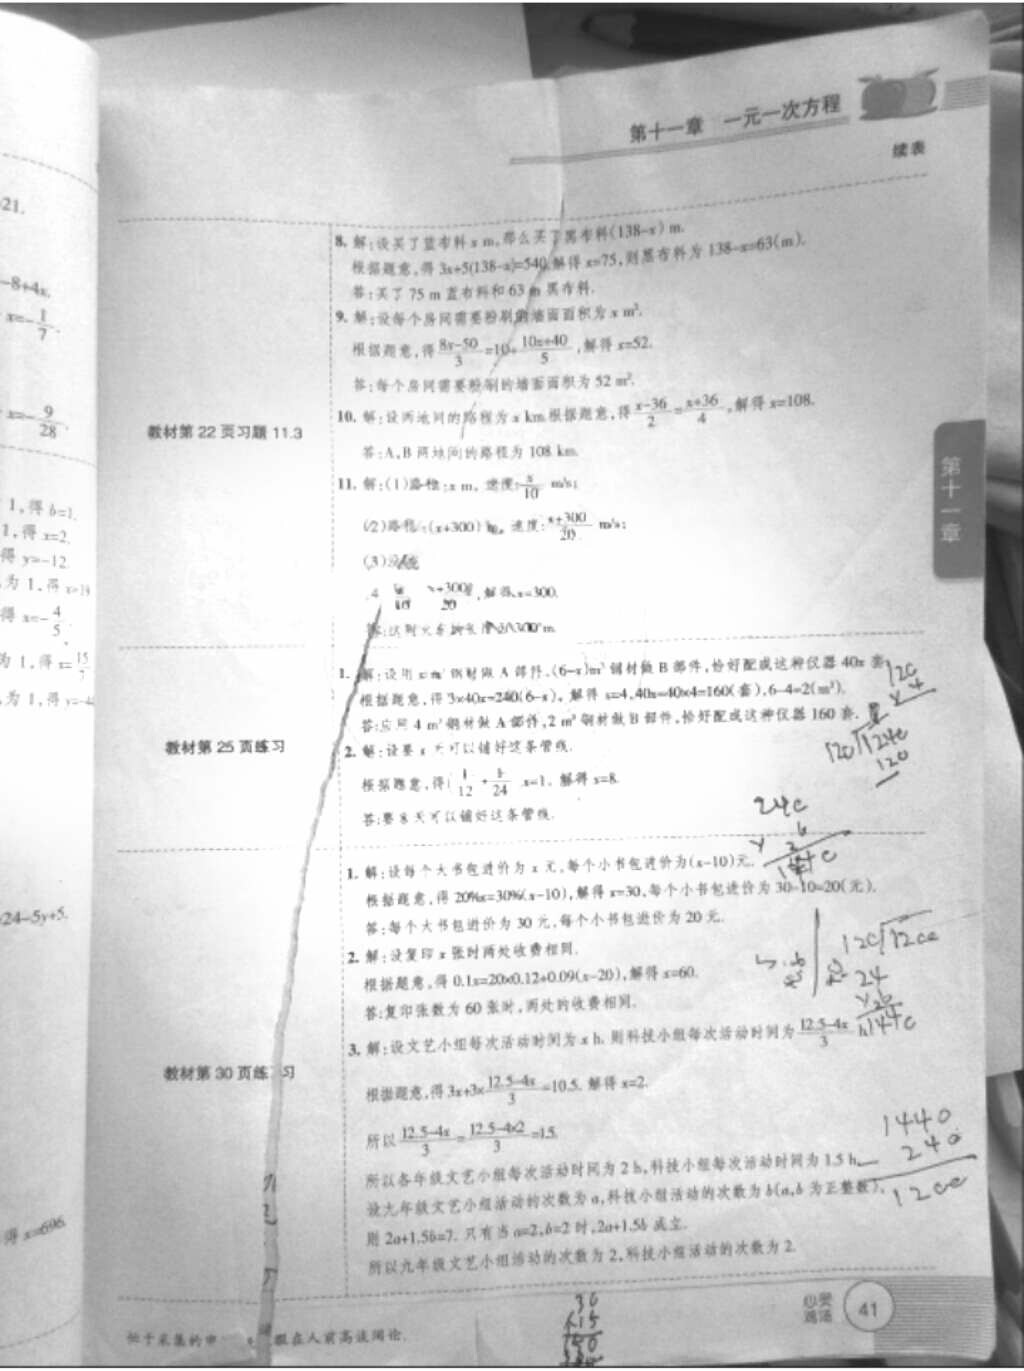 第十一章 一元一次方程
续表
21.
-8+4x.
x=-1/7.
x=-9/28.
1,得 b=1.
1,得 x=2.
得 y=-12.
为 1,得 x=19
得 x=-4/5.
为 1,得 x=15/7
为 1,得 y=-4
24-5y+5.
得 x=696.
教材第 22 页习题 11.3
8. 解:设买了蓝布料 x m,那么买了黑布料(138-x) m.
根据题意,得 3x+5(138-x)=540,解得 x=75,则黑布料为 138-x=63(m).
答:买了 75 m 蓝布料和 63 m 黑布料.
9. 解:设每个房间需要粉刷的墙面面积为 x m².
根据题意,得 (8x-50)/3=10+(10x+40)/5,解得 x=52.
答:每个房间需要粉刷的墙面面积为 52 m².
10. 解:设两地间的路程为 x km.根据题意,得 (x-36)/2=(x+36)/4,解得 x=108.
答:A,B 两地间的路程为 108 km.
11. 解:(1)路程:x m, 速度:x/10 m/s;
(2)路程:(x+300) m, 速度:(x+300)/20 m/s;
(3)
x/10 x+300/20,解得 x=300.
答:这列火车的长度 300 m.
教材第 25 页练习
1. 解:设用 x m³ 钢材做 A 部件,(6-x)m³ 钢材做 B 部件,恰好配成这种仪器 40x 套
根据题意,得 3×40x=240(6-x), 解得 x=4,40x=40×4=160(套),6-4=2(m³).
答:应用 4 m³ 钢材做 A 部件,2 m³ 钢材做 B 部件,恰好配成这种仪器 160 套.
2. 解:设要 x 天可以铺好这条管线.
根据题意,得(1/12+1/24 x=1. 解得 x=8.
答:要 8 天可以铺好这条管线.
教材第 30 页练习
1. 解:设每个大书包进价为 x 元,每个小书包进价为(x-10)元.
根据题意,得 20%x=30%(x-10),解得 x=30,每个小书包进价为 30-10=20(元).
答:每个大书包进价为 30 元,每个小书包进价为 20 元.
2. 解:设复印 x 张时两处收费相同.
根据题意,得 0.1x=20×0.12+0.09(x-20),解得 x=60.
答:复印张数为 60 张时,两处的收费相同.
3. 解:设文艺小组每次活动时间为 x h, 则科技小组每次活动时间为 (12.5-4x)/3 h
根据题意,得 3x+3×(12.5-4x)/3=10.5. 解得 x=2.
所以 (12.5-4x)/3=(12.5-4×2)/3=1.5.
所以各年级文艺小组每次活动时间为 2 h,科技小组每次活动时间为 1.5 h.
设九年级文艺小组活动的次数为 a,科技小组活动的次数为 b(a,b 为正整数),
则 2a+1.5b=7. 只有当 a=2,b=2 时,2a+1.5b 成立.
所以九年级文艺小组活动的次数为 2,科技小组活动的次数为 2.
第十一章
1440
240
1200
36
×15
180
心灵
鸡汤
41
在人前高谈阔论.